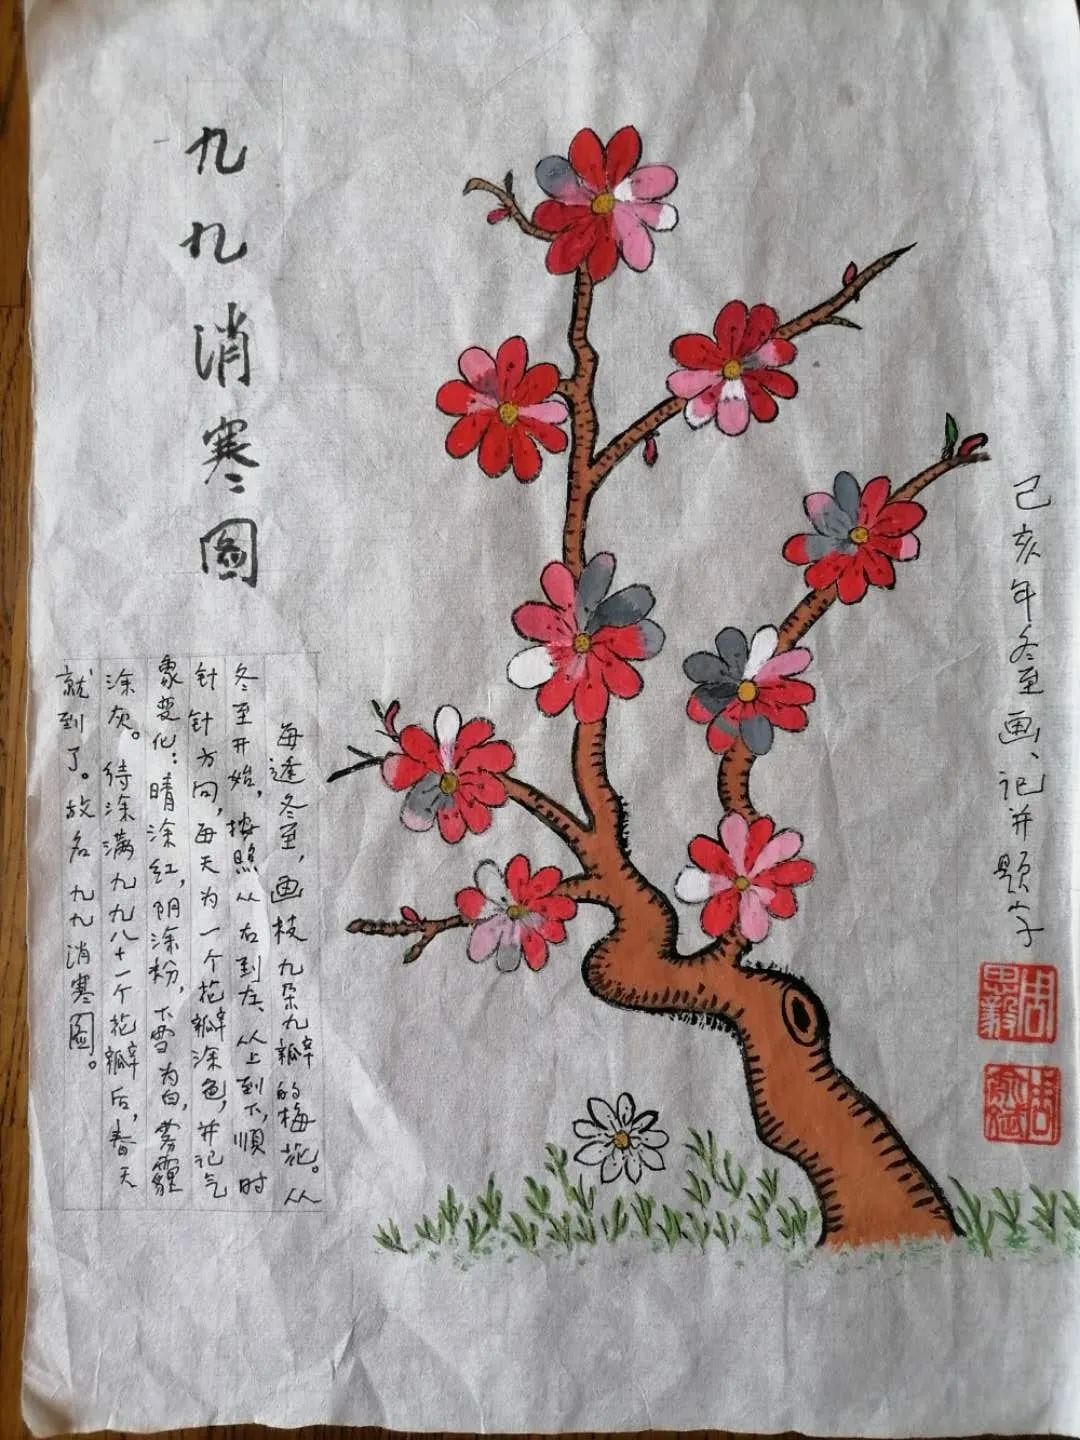 九九消寒图
每逢冬至，画枝九朵九瓣的梅花。从
冬至开始，按照从右到左、从上到下，顺时
针针方向，每天为一个花瓣涂色，并记气
象变化：晴涂红，阴涂粉，下雪为白，雾霾
涂灰。待涂满九九八十一个花瓣后，春天
就到了。故名九九消寒图。
己亥年冬至画、记并题字
周思毅
周